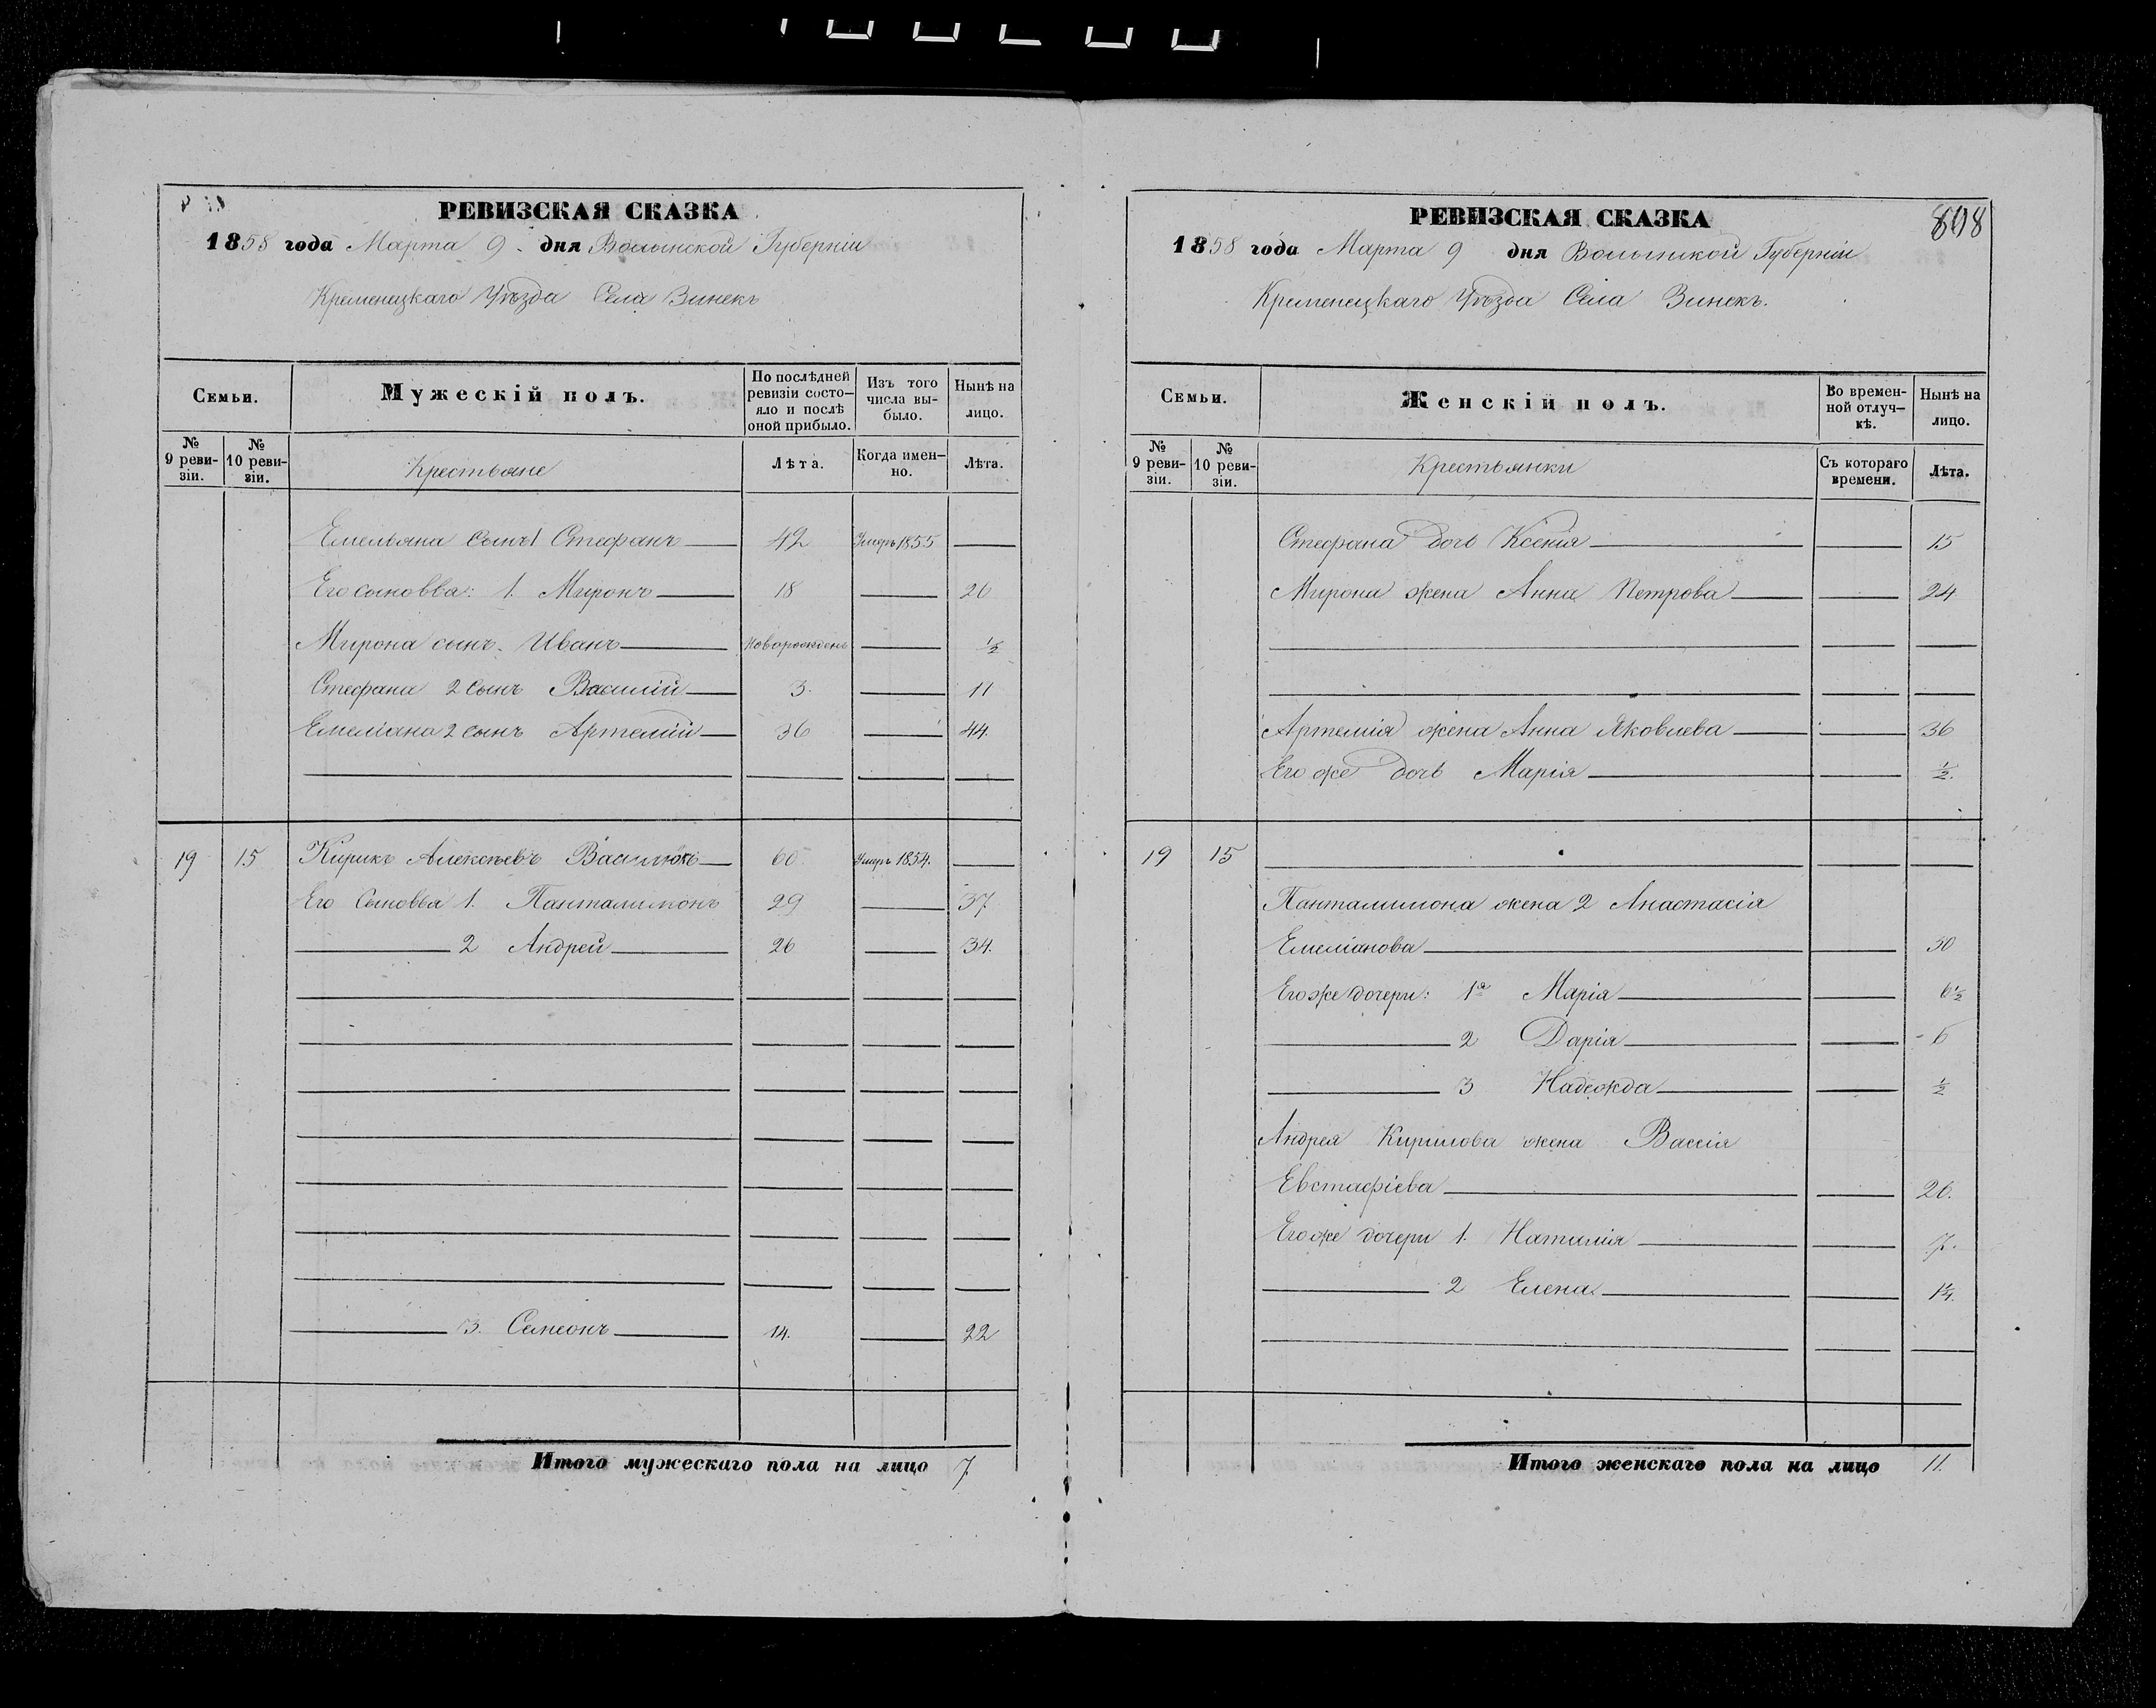 РЕВИЗСКАЯ СКАЗКА
1858 года Марта 9 дня Волынской Губерніи
Кременецкаго Уѣзда Села Зинекъ
Семьи.
Мужескій полъ.
По послѣдней ревизіи состо-
яло и послѣ
оной прибыло.
Изъ того
числа вы-
было.
Нынѣ на
лицо.
№
9 реви-
зіи.
№
10 реви-
зіи.
Крестьяне
Лѣта.
Когда имен-
но.
Лѣта.
Емельяна Сынъ 1 Стефанъ 42 Умеръ 1855
Его сыновья: 1. Миронъ 18 26
Мирона сынъ. Иванъ Новорожденъ ½
Стефана 2 сынъ Василій 3. 11
Емеліана 2 сынъ Артемій 36 44.
19 15 Кирикъ Алексѣевъ Василюкъ 60 Умеръ 1854.
Его Сыновья 1. Панталимонъ 29 37
2 Андрей 26 34.
3. Симеонъ 14. 22
Итого мужескаго пола на лицо 7
РЕВИЗСКАЯ СКАЗКА
808
1858 года Марта 9 дня Волынской Губерніи
Кременецкаго Уѣзда Села Зинекъ.
Семьи.
Женскій полъ.
Во времен-
ной отлуч-
кѣ.
Нынѣ на
лицо.
№
9 реви-
зіи.
№
10 реви-
зіи.
Крестьянки
Съ котораго
времени.
Лѣта.
Стефана дочь Ксенія 15
Мирона жена Анна Петрова 24
Артемія жена Анна Яковлева 36
Его же дочь Марія ½.
19 15
Панталимона жена 2 Анастасія
Емеліанова 30
Его же дочери: 1я Марія 6½
2 Дарія 6
3 Надежда ½
Андрея Кирилова жена Вассія
Евстафіева 26.
Его же дочери 1. Наталія 7.
2 Елена 1¼.
Итого женскаго пола на лицо 11.